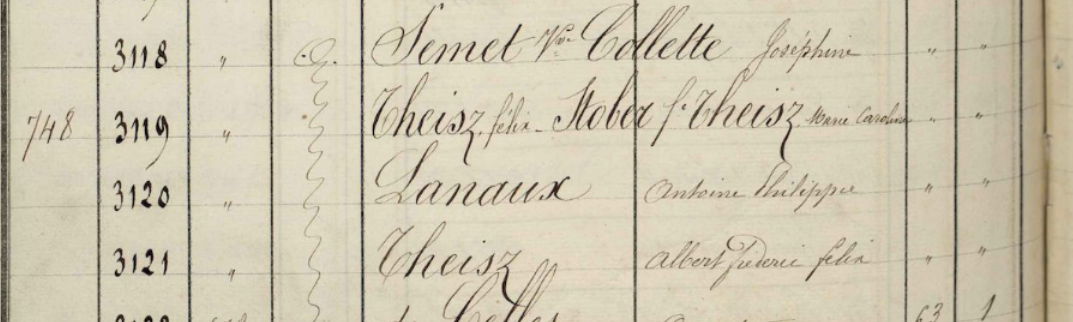 3118 " Semet Vve Collette Joséphine " "
748 3119 " Theisz, félix - Stober fe Theisz, Marie Caroline " "
3120 " Lanaux Antoine Philippe " "
3121 " Theisz Albert Frederic félix " "
63 1